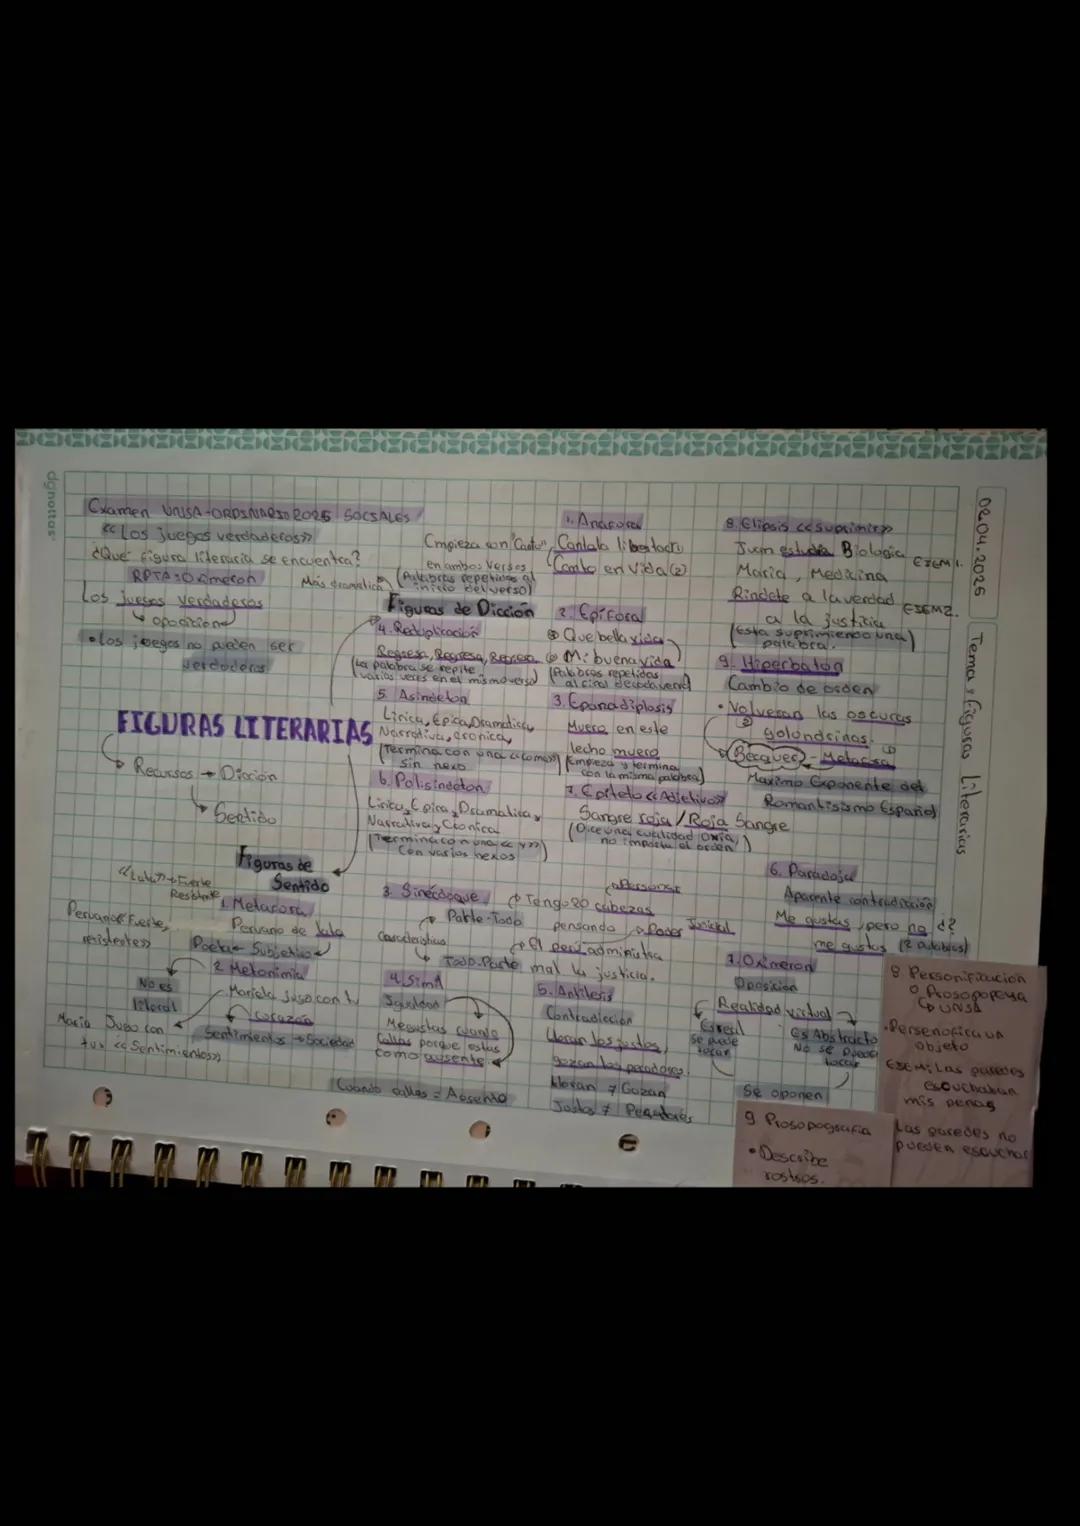 dgnottas
02.04.2025
Tema: Figuras Literarias
Examen UNSA-ORDINARIO 2025 SOCIALES
<<Los juegos verdaderos>>
¿Qué figura literaria se encuentra?
RPTA: Oximeron
Los juegos verdaderos
oposicion
• Los juegos no pueden ser
verdaderos
FIGURAS LITERARIAS
Recursos → Diccion
Sentido
Figuras de Diccion
1. Anafora
Empieza con "Canto", Canta la libertad
en ambos versos (Canto en vida (2)
Más dramatica (Palabras repetidas al
inicio del verso)
2. Epífora
Que bella vida
Mi buena vida
(Palabras repetidas
al final de cada verso)
3. Epanadiplosis
Muero en este
lecho muero
(Empieza y termina
con la misma palabra)
4. Reduplicación
Regresa, Regresa, Regresa
(La palabra se repite
varias veces en el mismo verso)
5. Asindeton
Lirica, Epica, Dramatica,
Narrativa, cronica,
(Termina con una <<coma>>
sin nexo
6. Polisindeton
Lirica y Epica y Dramatica y
Narrativa y Cronica
(Termina con una << y >>)
Con varios nexos
7. Epiteto <<Adjetivo>>
Sangre roja / Roja Sangre
(Dice una cualidad
no importa el orden)
8. Elipsis <<Suprimir>>
Juan estudia Biologia EJEM 1.
Maria, Medicina
Rindete a la verdad EJEM 2.
a la justicia
(Esta suprimiendo una)
palabra.
9. Hiperbaton
Cambio de orden
• Volveran las oscuras
golondrinas.
Becquer - Metafora
Maximo Exponente del
Romantisismo Español
Figuras de
Sentido
1. Metafora
Peruano de lata
<<Lata>> → Fuerte
Resistente
Peruano <<Fuerte,
resistente>>
Poeta - Subjetivo
No es
literal
2. Metonimia
Mariela juso con tu
corazon
Sentimientos → Sociedad
Maria Juso con
tus <<Sentimientos>>
3. Sinécdoque
Parte - Todo
Caracteristicas
Todo - Parte
Tengo 20 cabezas
pensando
Personas
Poder Judicial
El perú administra
mal la justicia.
4. Simil
Igualdad
Me gustas cuando
callas porque estas
como ausente
Cuando callas = Ausente
5. Antitesis
Contradiccion
Lloran los justos,
gozan los pecadores.
Lloran ≠ Gozan
Justos ≠ Pecadores
6. Paradoja
Aparente contradicción
Me gustas, pero no ¿?
me gustas (2 palabras)
7. Oximeron
Oposicion
Realidad virtual
Es real
Se puede
tocar
Es Abstracto
No se puede
tocar
Se oponen
8 Personificacion
o Prosopopeya
UNSA
• Personifica un
objeto
EJEM: Las paredes
escuchaban
mis penas
Las paredes no
pueden escuchar
9 Prosopografia
• Describe
rostros.